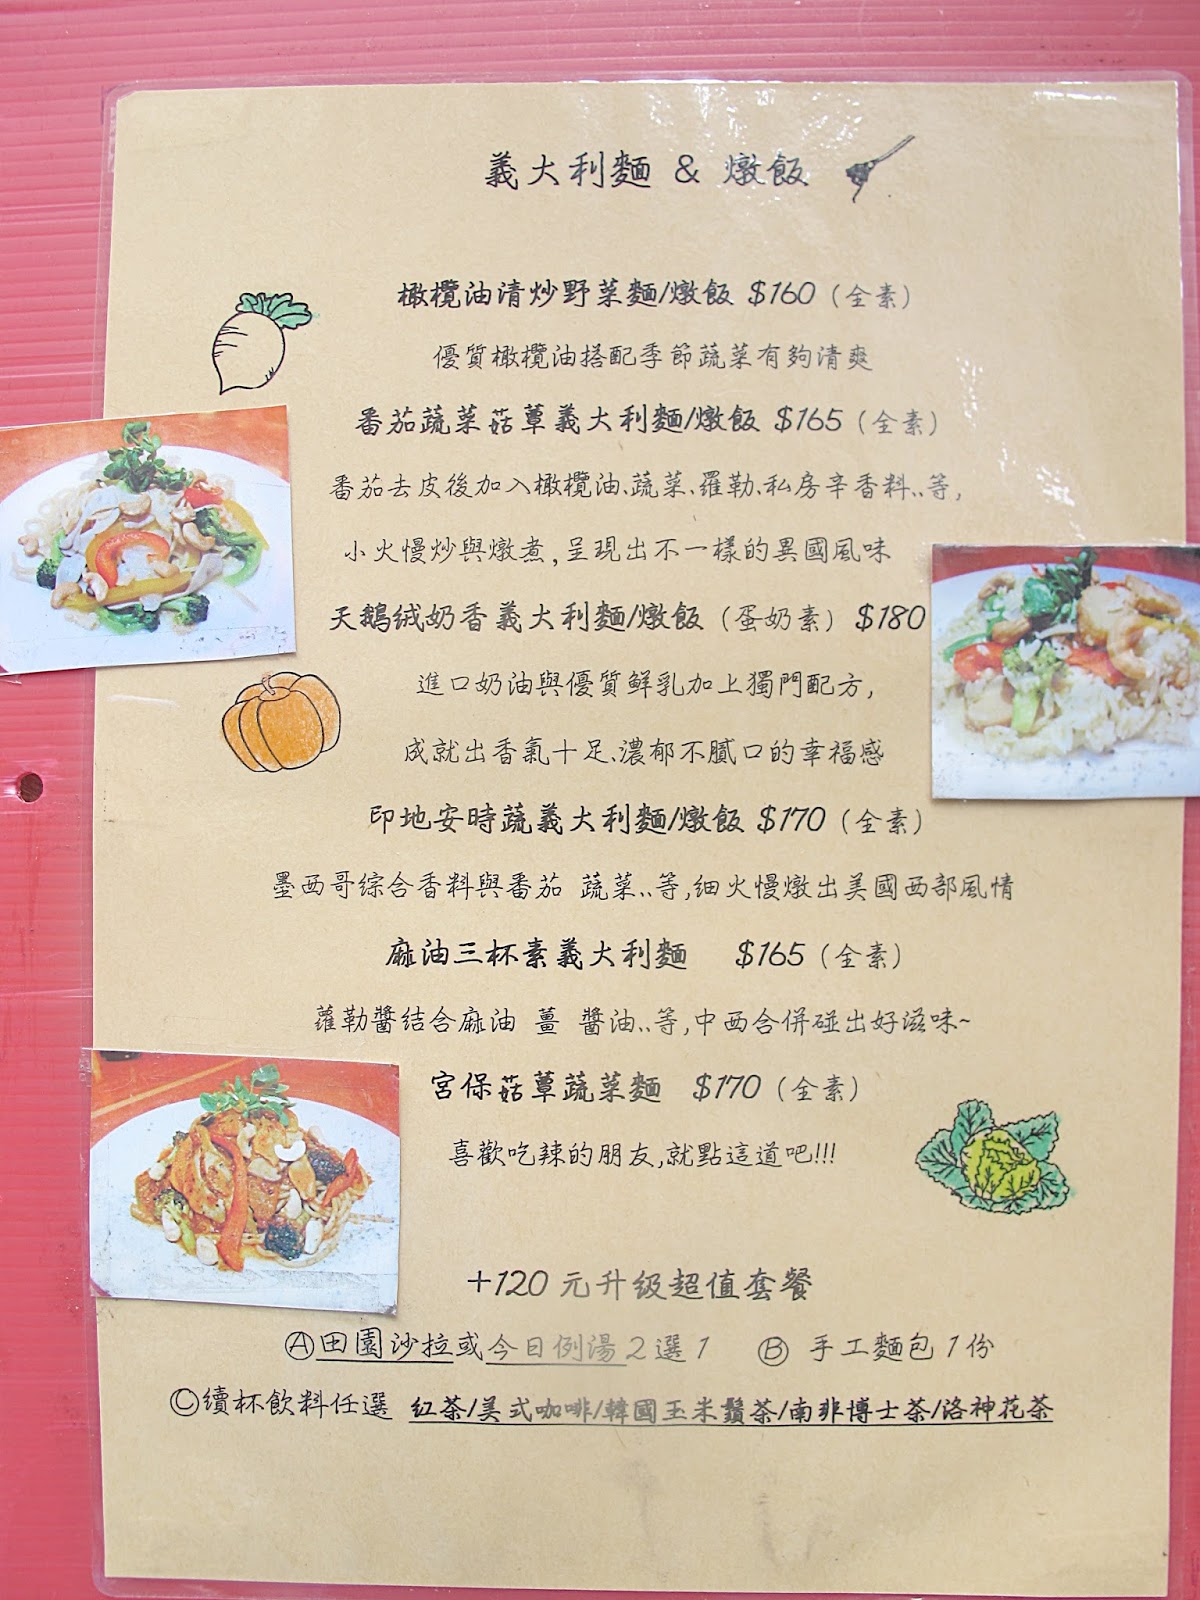 義大利麵 & 燉飯
橄欖油清炒野菜麵/燉飯 $160 (全素)
優質橄欖油搭配季節蔬菜有夠清爽
番茄蔬菜菇蕈義大利麵/燉飯 $165 (全素)
番茄去皮後加入橄欖油、蔬菜、羅勒、私房辛香料..等,
小火慢炒與燉煮,呈現出不一樣的異國風味
天鵝絨奶香義大利麵/燉飯 (蛋奶素) $180
進口奶油與優質鮮乳加上獨門配方,
成就出香氣十足、濃郁不膩口的幸福感
印地安時蔬義大利麵/燉飯 $170 (全素)
墨西哥綜合香料與番茄 蔬菜..等,細火慢燉出美國西部風情
麻油三杯素義大利麵 $165 (全素)
蘿勒醬結合麻油 薑 醬油..等,中西合併碰出好滋味~
宮保菇蕈蔬菜麵 $170 (全素)
喜歡吃辣的朋友,就點這道吧!!!
+120 元升級超值套餐
Ⓐ田園沙拉或今日例湯 2 選 1 Ⓑ 手工麵包 1 份
Ⓒ續杯飲料任選 紅茶/美式咖啡/韓國玉米鬚茶/南非博士茶/洛神花茶